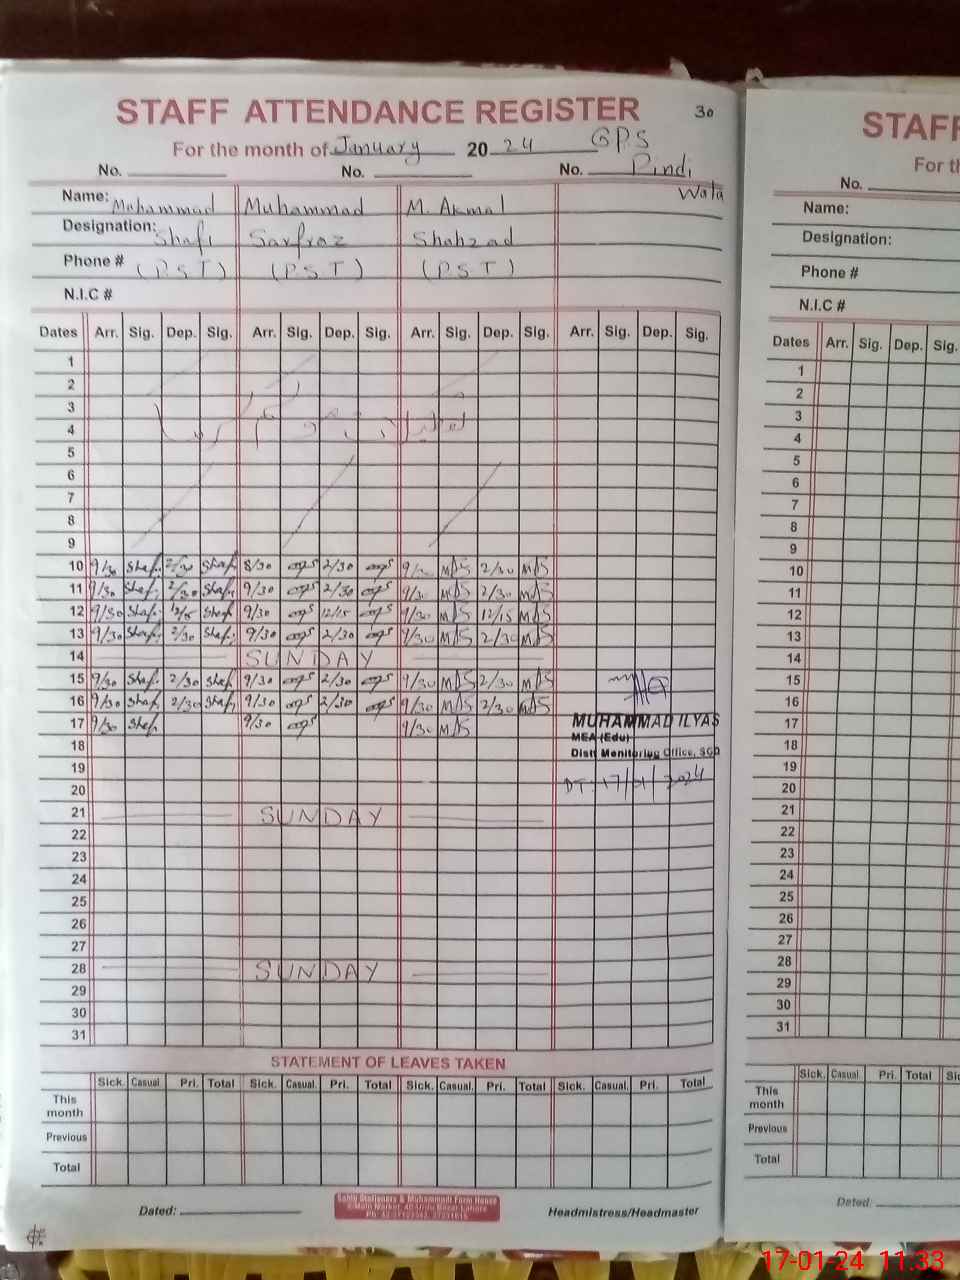 STAFF ATTENDANCE REGISTER 30
For the month of January 2024 GPS
No. No. No. Pindi
Wala
Name: Muhammad Muhammad M. Akmal
Designation: Shafi Sarfraz Shahzad
Phone # (P.S.T) (P.S.T) (P.S.T)
N.I.C #
Dates Arr. Sig. Dep. Sig. Arr. Sig. Dep. Sig. Arr. Sig. Dep. Sig. Arr. Sig. Dep. Sig.
1
2
3
4
5
6
7
8
9
10 9/30 Shaf. 2/30 Shaf. 8/30 2/30 MAS 2/30 MAS
11 9/30 Shaf. 2/30 Shaf. 9/30 2/30 9/30 MAS 2/30 MAS
12 9/30 Shaf. 12/15 Shaf 9/30 12/15 9/30 MAS 12/15 MAS
13 9/30 Shaf. 2/30 Shaf. 9/30 2/30 9/30 MAS 2/30 MAS
14 SUNDAY
15 9/30 Shaf. 2/30 Shaf. 9/30 2/30 9/30 MAS 2/30 MAS
16 9/30 Shaf. 2/30 Shaf. 9/30 2/30 9/30 MAS 2/30 MAS
17 9/30 Shaf. 9/30 9/30 MAS
MUHAMMAD ILYAS
MEA (Edu)
Distt Monitoring Office, SGD
DT 17/01/2024
18
19
20
21 SUNDAY
22
23
24
25
26
27
28 SUNDAY
29
30
31
STATEMENT OF LEAVES TAKEN
Sick. Casual. Pri. Total Sick. Casual. Pri. Total Sick. Casual. Pri. Total Sick. Casual. Pri. Total
This
month
Previous
Total
Dated: Headmistress/Headmaster
STAFF
For th
No.
Name:
Designation:
Phone #
N.I.C #
Dates Arr. Sig. Dep. Sig.
1
2
3
4
5
6
7
8
9
10
11
12
13
14
15
16
17
18
19
20
21
22
23
24
25
26
27
28
29
30
31
Sick. Casual. Pri. Total Sic
This
month
Previous
Total
Dated:
17-01-24 11:33